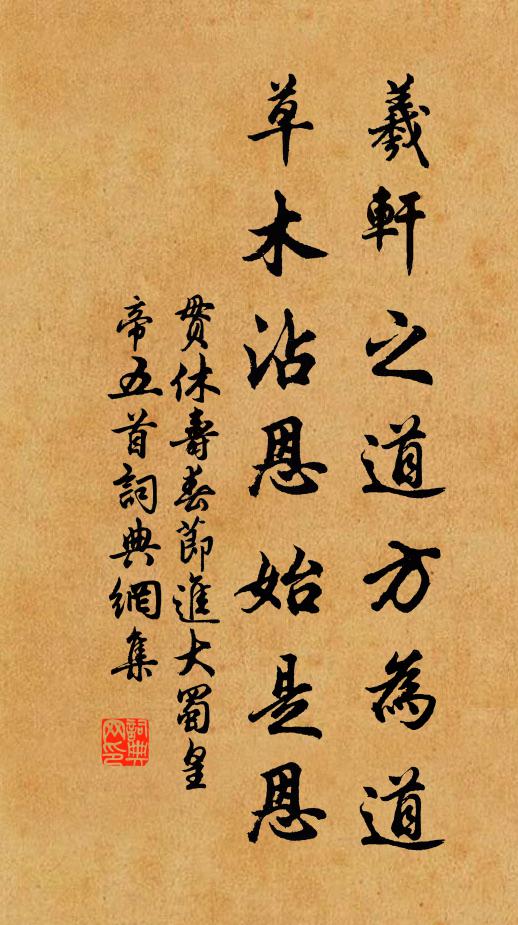 羲軒之道方為道
草木沾恩始是恩
貫休壽春節進大蜀皇
帝五首詞典網集
詞典
网印